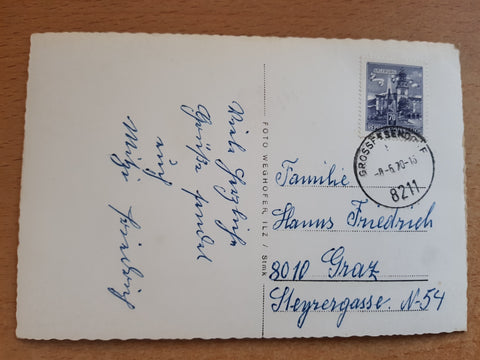 Viele herzliche
Grüße sendet
euch
Mitzi Friedrich
FOTO WEGHOFER, ILZ / Stmk
GROSSPESENDORF
-8.-5.70-16
8211
Familie
Hanns Friedrich
8010 Graz
Steyrergasse N-54